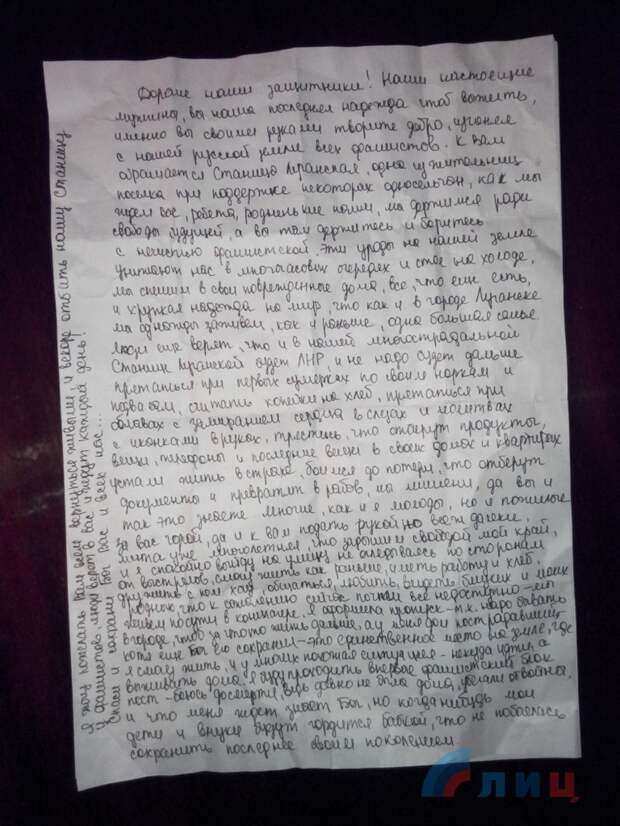 Дорогие наши защитники! Наши настоящие
мужчины, вы наша последняя надежда чтоб выжить,
именно вы своими руками творите добро, изгоняя
с нашей русской земли всех фашистов. К вам
обращается Станица Луганская, одна из жительниц
поселка при поддержке некоторых односельчан, как мы
ждем вас, ребята, родненькие наши, мы держимся ради
свободы будущей, а вы там держитесь и боритесь
с нечистью фашистской. Эти уроды на нашей земле
унижают нас в многочасовых очередях и стоя на холоде,
мы спешим в свои поврежденные дома, все, что еще есть,
и хрупкая надежда на мир, что как и в городе Луганске
мы однажды заживем, как и раньше, одна большая семья
люди еще верят, что и в нашей многострадальной
Станице Луганской будет ЛНР, и не надо будет дальше
прятаться при первых сумерках по своим норкам и
подвалам, считать копейки на хлеб, прятаться при
облавах с замиранием сердца в слезах и молитвах
с иконками в руках, трястись, что отберут продукты,
вещи, телефоны и последние вещи в своих домах и квартирах
устали жить в страхе, боимся до потери, что отберут
документы и превратят в рабов, на мишени, да вы и
так это знаете многие, как и я молоды, но и пожилые
за вас горой, да и к вам подать рукой, но всем далеки,
мечта уже многолетняя, что задышит свободой мой край,
и я спокойно выйду на улицу не оглядываясь по сторонам
от выстрелов, смогу жить как раньше, иметь работу и хлеб,
дружить с кем хочу, общаться, любить, видеть близких и моих
родных, что к сожалению сейчас почти все недоступно - мы
живем почти в концлагере. Я оформила пропуск - т.к. надо бывать
в городе, чтоб за что-то жить дальше, а у меня дом пострадавший
хотя еще Бог его сохранил - это единственное место на земле, где
я смогу жить, и у многих похожая ситуация - некуда идти, а
выживать дома, я буду проходить впервые фашистский блок
пост - боюсь до смерти, ведь давно не была дома,
и что меня ждет знает Бог, но когда-нибудь мои
дети и внуки будут гордится бабкой, что не побоялась
сохранить последнее своим поколениям
Я хочу пожелать вам всем вернуться живыми, и вскоре отбить нашу Станицу
у фашистов, люди верят в вас и ждут каждый день!
Спаси и сохрани Бог вас и всех нас...
ЛИЦ